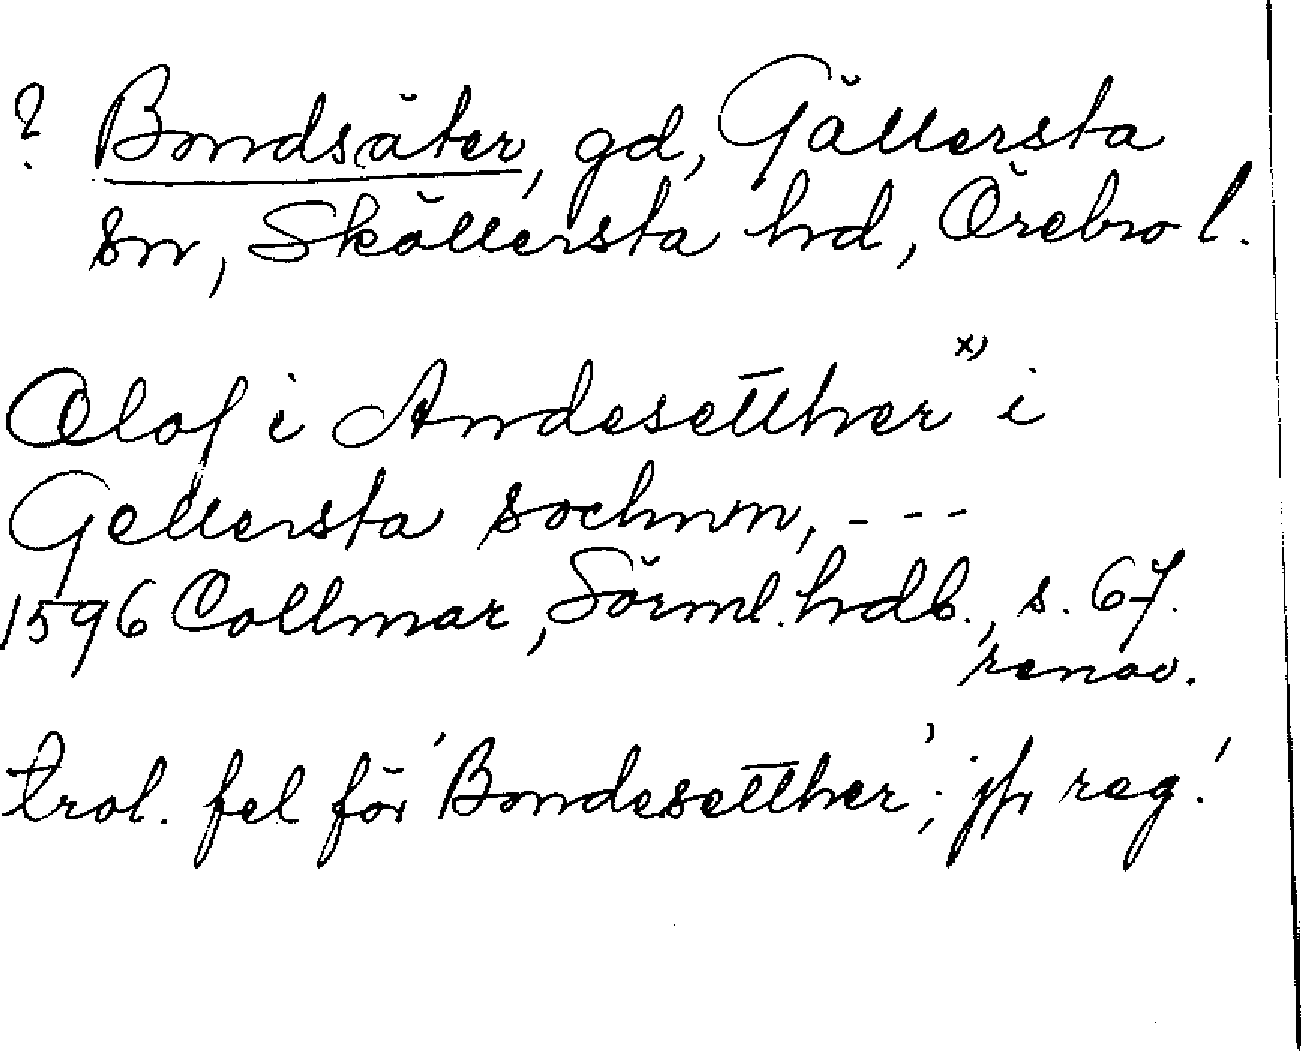 ? Bondsäter, gd, Gällersta
sn, Sköllersta hrd, Örebro l.
Olof i Andesetther x) i
Gellersta sochnn, - - -
1596 Collmar, Sörml. hdl., s. 67.
renov.
trol. fel för 'Bondesetther'; jfr reg.!